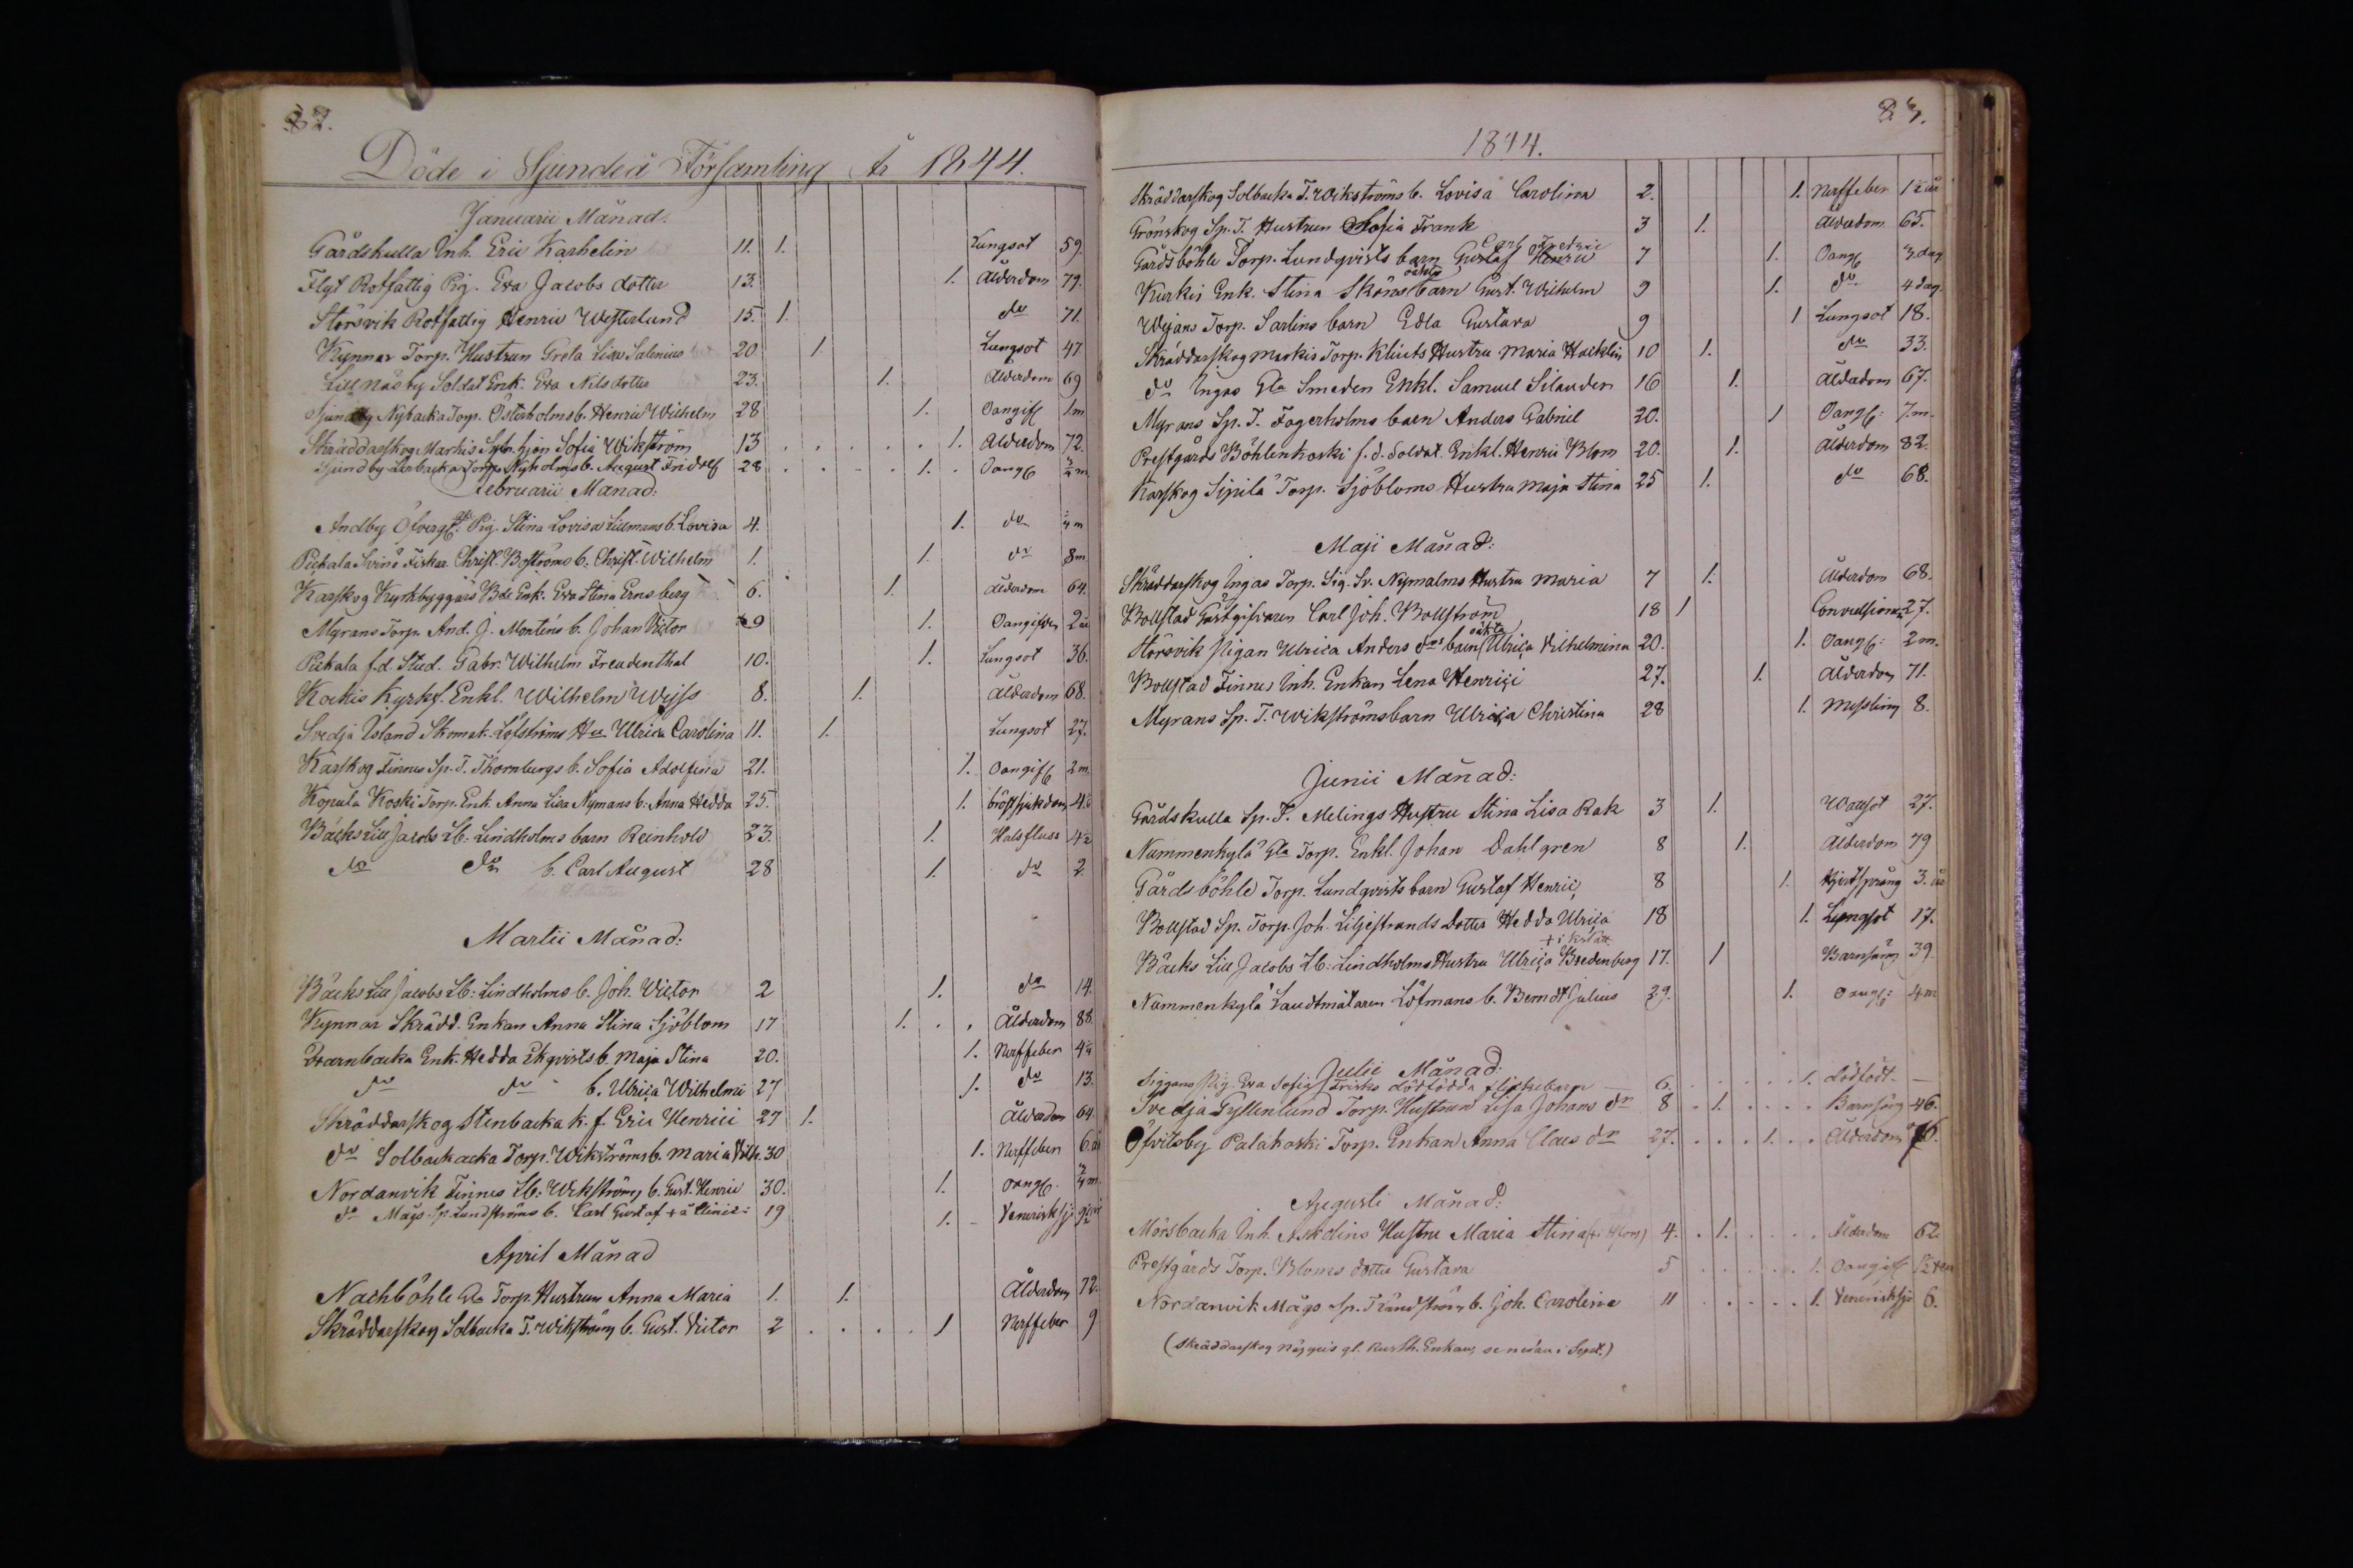 82.
Döde i Sjundeå Församling År 1844.
Januarii Månad:
Gårdskulla Inh. Eric Karhelin 11. 1. Lungsot 59.
Flyt Rotfattig Pig. Eva Jacobs dotter 13. 1. Ålderdom 79.
Störsvik Rotfattig Henric Westerlund 15. 1. do 71.
Kynnar Torp. Hustrun Greta Lisa Salenius 20 1. Lungsot 47
Lill näsby Soldat Enk. Eva Nils dotter 23. 1. Ålderdom 69
Sjundby Nybacka Torp. Österholms b. Henric Wilhelm 28 1. Oangif 1m
Skräddarskog Markis Sytn. hjon Sofia Wikström 13 1. Ålderdom 72.
Sjundby Lerbacka Torp. Nyholms b. August Fridolf 28 1. Oang 3/4 m
Februarii Månad:
Andby Öfverg. Pig. Stina Lovisa Lillmans b. Lovisa 4. 1. do m
Pickala Svinö Fiskar. Christ. Boströms b. Christ. Wilhelm 1. 1. do 8m
Karskog Kyrkbyggars Bde Enk. Eva Stina Ernsberg 6. 1. Ålderdom 64.
Myrans Torp. And. J. Monténs b. Johan Victor 9 1. Oangifven 2 år
Pickala f.d. Stud. Gabr. Wilhelm Freudenthal 10. 1. Lungsot 36.
Kockis Kyrkf. Enkl. Wilhelm Weiss 8. 1. Ålderdom 68.
Svedja Island Skomak. Löfströms Hu Ulrica Carolina 11. 1. Lungsot 27.
Karskog Finnes Sp. T. Thornbergs b. Sofia Adolfina 21. 1. Oangif 2m.
Kopula Koski Torp. Enk. Anna Lisa Nymans b. Anna Hedda 25. 1. bröstsjukdom 4
Bäcks Lill Jacobs Lb: Lindholms barn Reinhold 23. 1. Halsfluss 4 1/2
do do b. Carl August 28 1. do 2
Martii Månad:
Bäcks Lill Jacobs Lb: Lindholms b. Joh. Victor 2 1. do 14.
Kynnar Skrädd. Enkan Anna Stina Sjöblom 17 1. Ålderdom 88.
Qvarnbacka Enk. Hedda Ekqvists b. Maja Stina 20. 1. Nerffeber 4
do do b. Ulrica Wilhelmi 27 1. do 13.
Skräddarskog Stenbacka k. f. Eric Henrici 27 1. Ålderdom 64.
do Solbackacka Torp. Wikströms b. Maria Wilh. 30 1. Nerffeber 6 år
Nordanvik Finnes Lb: Wikströms b. Gust. Henric 30. 1. oang 3/4 m
do Mågs Sp. Lundströms b. Carl Gustaf + å Clinic: 19 1. Venerisk sj: 9 1/2
April Månad
Nackböhle Gla Torp. Hustrun Anna Maria 1. 1. Ålderdom 72.
Skräddarskog Solbacka T. Wikströms b. Gust. Victor 2 1 Nerffeber 9
83.
1844.
Skräddarskog Solbacka T. Wikströms b. Lovisa Carolina 2. 1. Nerffeber 1 1/2 år
Grönskog Sp. T. Hustrun Sofia Frank 3 1. Ålderdom 65.
Carl Fredric
Gårdsböhle Torp. Lundqvists barn Gustaf Henric 7 1. Oang 3 dag
oäkta
Kurkis Enk. Stina Sköns barn Gust. Wilhelm 9 1. do 4 dag.
Weijans Torp. Sarlins barn Edla Gustava 9 1 Lungsot 18.
Skräddarskog Markis Torp. Klints Hustru Maria Hacklin 10 1. do 33.
do Ingas Gla Smeden Enkl. Samuel Silander 16 1. Ålderdom 67.
Myrans Sp. T. Fagerholms barn Anders Gabriel 20. 1 Oang: 7.m.
Prestgårds Böhlenkoski f.d. Soldat. Enkl. Henric Blom 20. 1. Ålderdom 82.
Karskog Sipilä Torp. Sjöbloms Hustru Maja Stina 25 1. do 68.
Maji Månad:
Skräddarskog Ingas Torp. Sig. Sv. Nymalms Hustru Maria 7 1. Ålderdom 68.
Bollstad Gästgifvaren Carl Joh. Bollström 18 1 Convulsioner 27.
oäkta
Störsvik Pigan Ulrica Anders drs barn Ulrica Vilhelmina 20. 1. Oang: 2m.
Bollstad Finnes Inh. Enkan Lena Henrici 27. 1. Ålderdom 71.
Myrans Sp. T. Wikströms barn Ulrica Christina 28 1. Messling 8.
Junii Månad:
Gårdskulla Sp. T. Melings Hustru Stina Lisa Rak 3 1. Wattsot 27.
Nummenkylä Gla Torp. Enkl. Johan Dahlgren 8 1. Ålderdom 79
Gårdsböhle Torp. Lundqvists barn Gustaf Henric, 8 1. Hjertsprång 3. år
Bollstad Sp. Torp. Joh. Liljestrands Dotter Hedda Ulrica 18 1. Lungsot 17.
Bäcks Lill Jacobs Lb: Lindholms Hustru Ulrica Bredenberg 17. 1 Barnsäng 39.
Nummenkylä Landtmätaren Löfmans b. Berndt Julius 29. 1. oang: 4m
Julii Månad.
Siggans Pig. Eva Sofia Frisks dödfödda flickebarn — 6. 1. dödfödt —
Svedja Gyllenlund Torp. Hustrun Lisa Johans dr 8 1. Barnsäng 46.
Öfvitsby Palakoski Torp. Enkan Anna Claes dr 27. 1. Ålderdom 76.
Augusti Månad:
Mörsbacka Inh. Askelins Hustru Maria Stina 4. 1. Ålderdom 62.
Prestgårds Torp. Bloms dotter Gustava 5 1. Oangif
Nordanvik Mågs Sp. T. Lundströms b. Joh. Carolina 11 1. Venerisk sj. 6.
(Skräddarskog Nägveis gl. Rusth. Enkan, se nedan i Sept.)